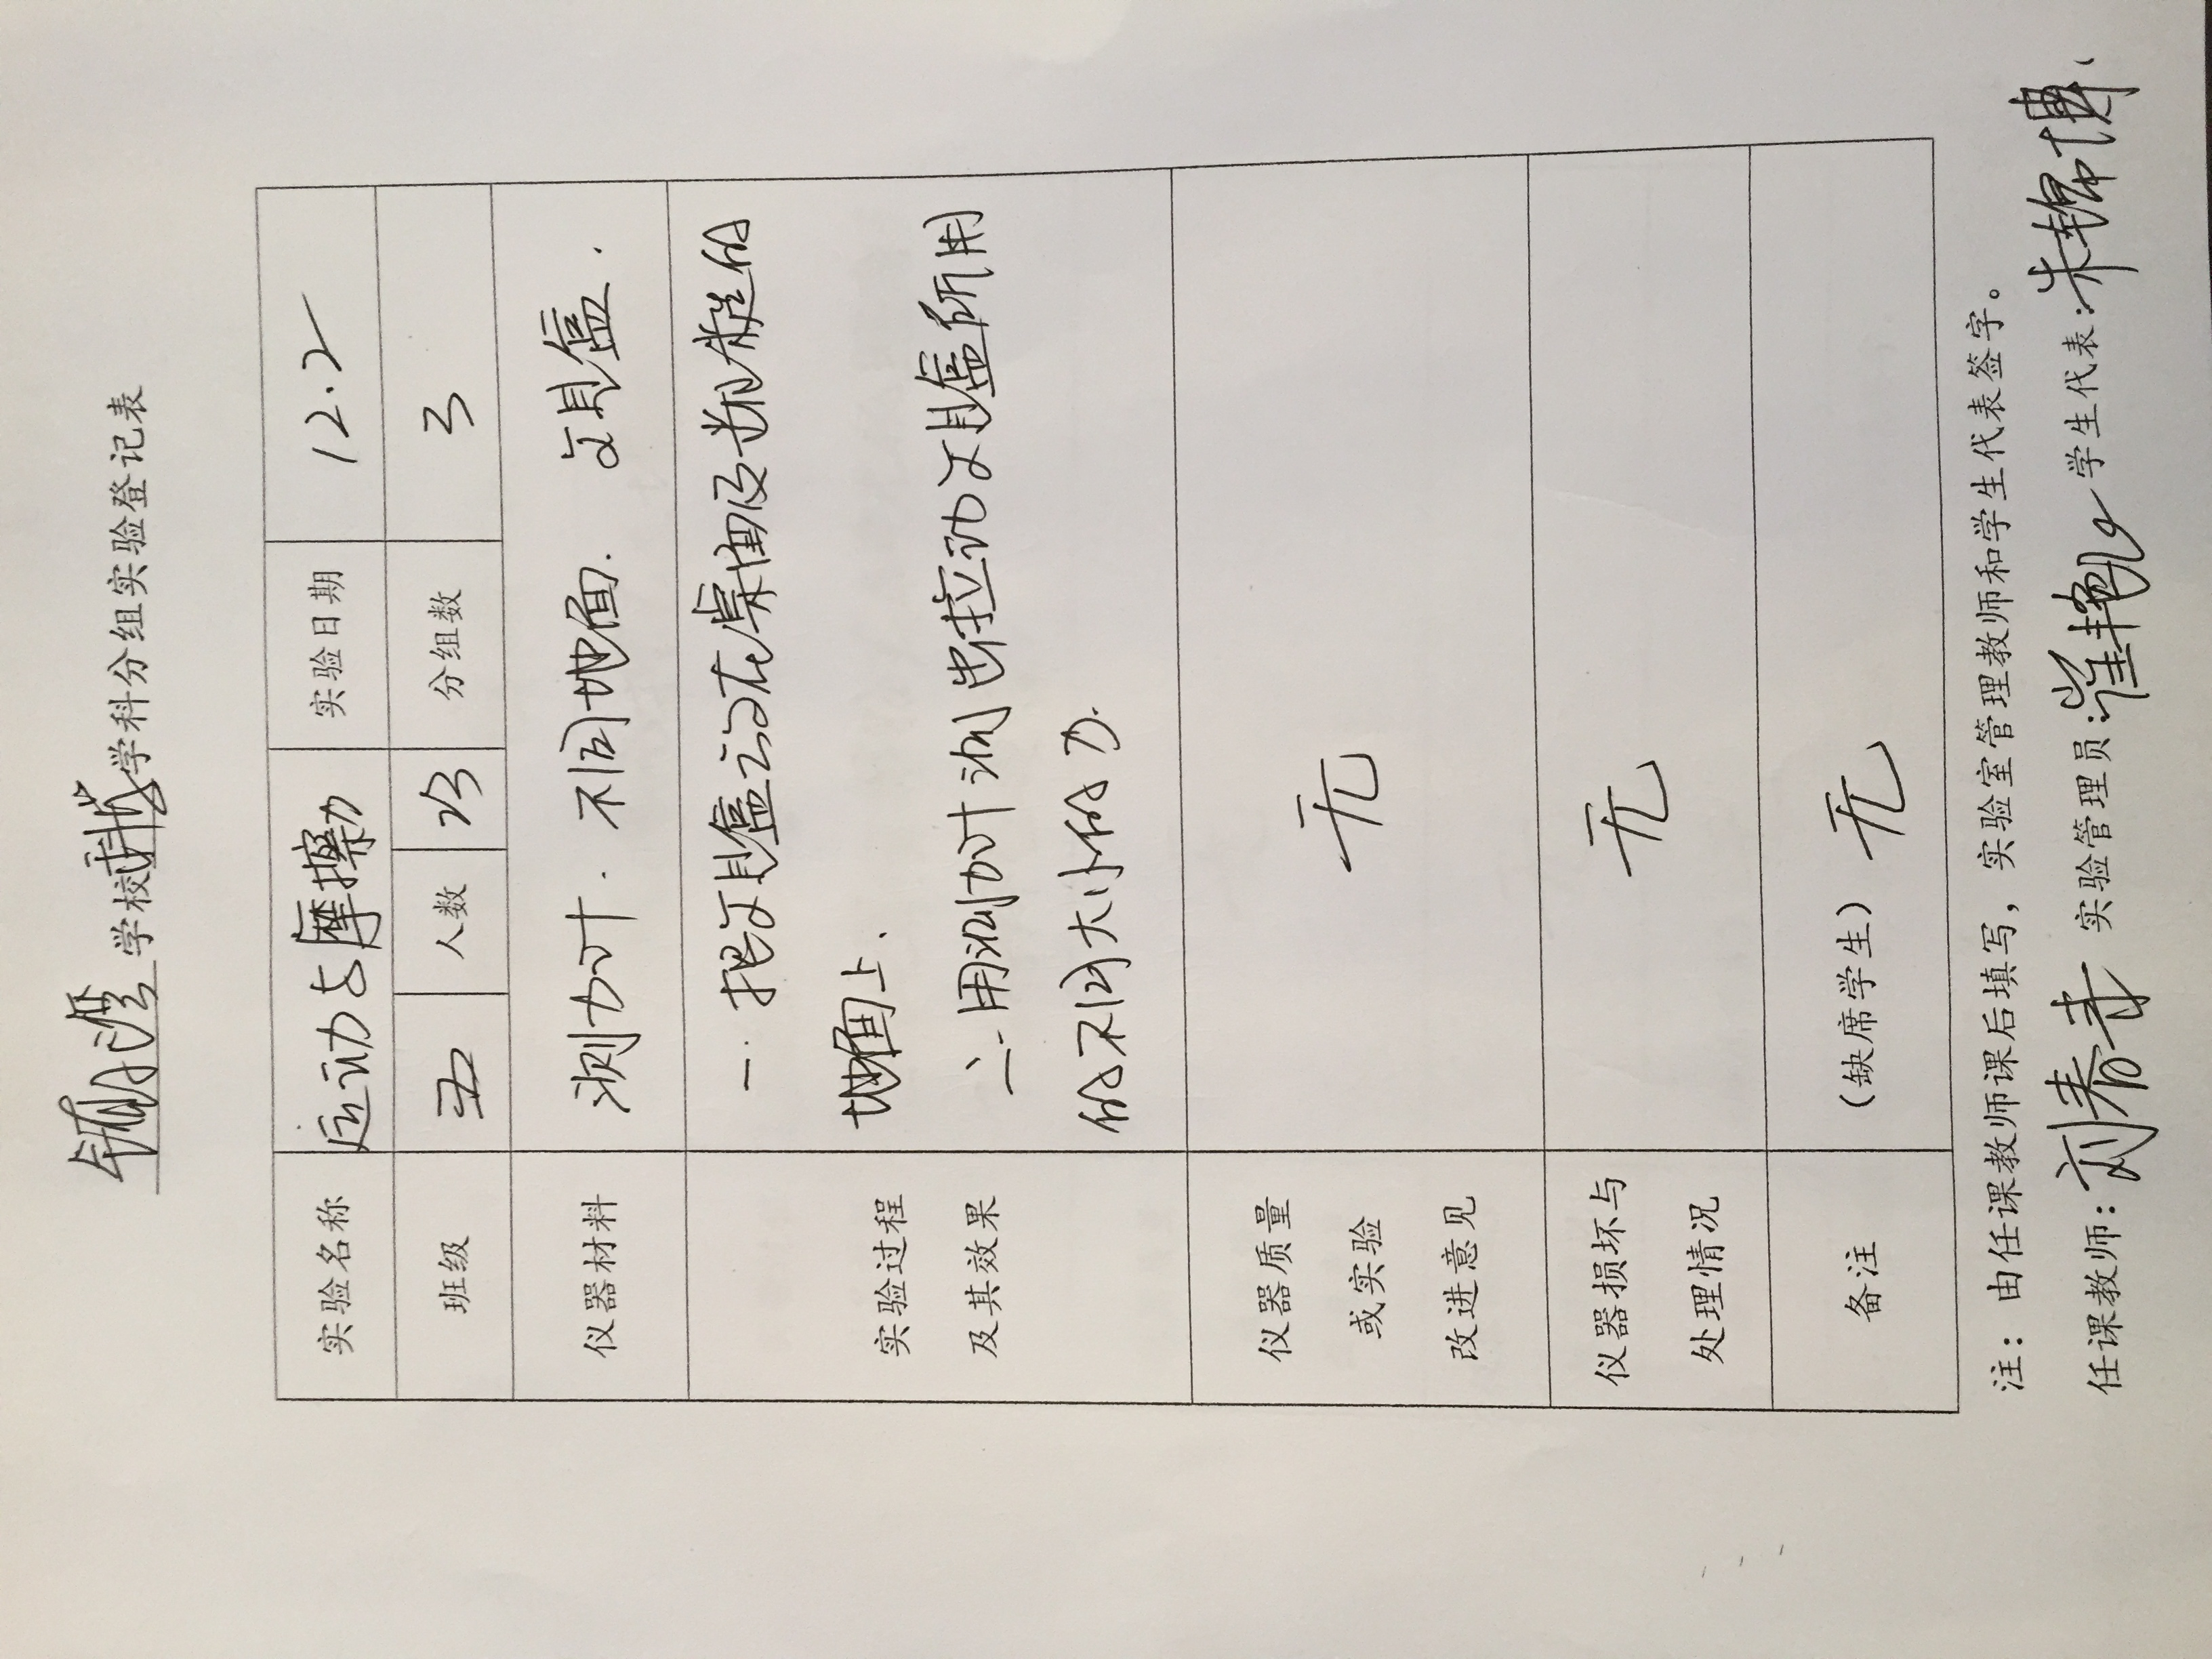 学校科学学科分组实验登记表
实验名称 运动与摩擦力 实验日期 12.2
班级 五 人数 23 分组数 3
仪器材料 测力计. 不同地面. 文具盒.
实验过程及其效果
一. 把文具盒放在桌面及粗糙的
地面上.
二. 用测力计测出拉动文具盒所用
的不同大小的力.
仪器质量或实验改进意见 无
仪器损坏与处理情况 无
备注 (缺席学生) 无
注：由任课教师课后填写，实验室管理教师和学生代表签字。
任课教师：刘春青 实验管理员：崔艳 学生代表：朱锦博